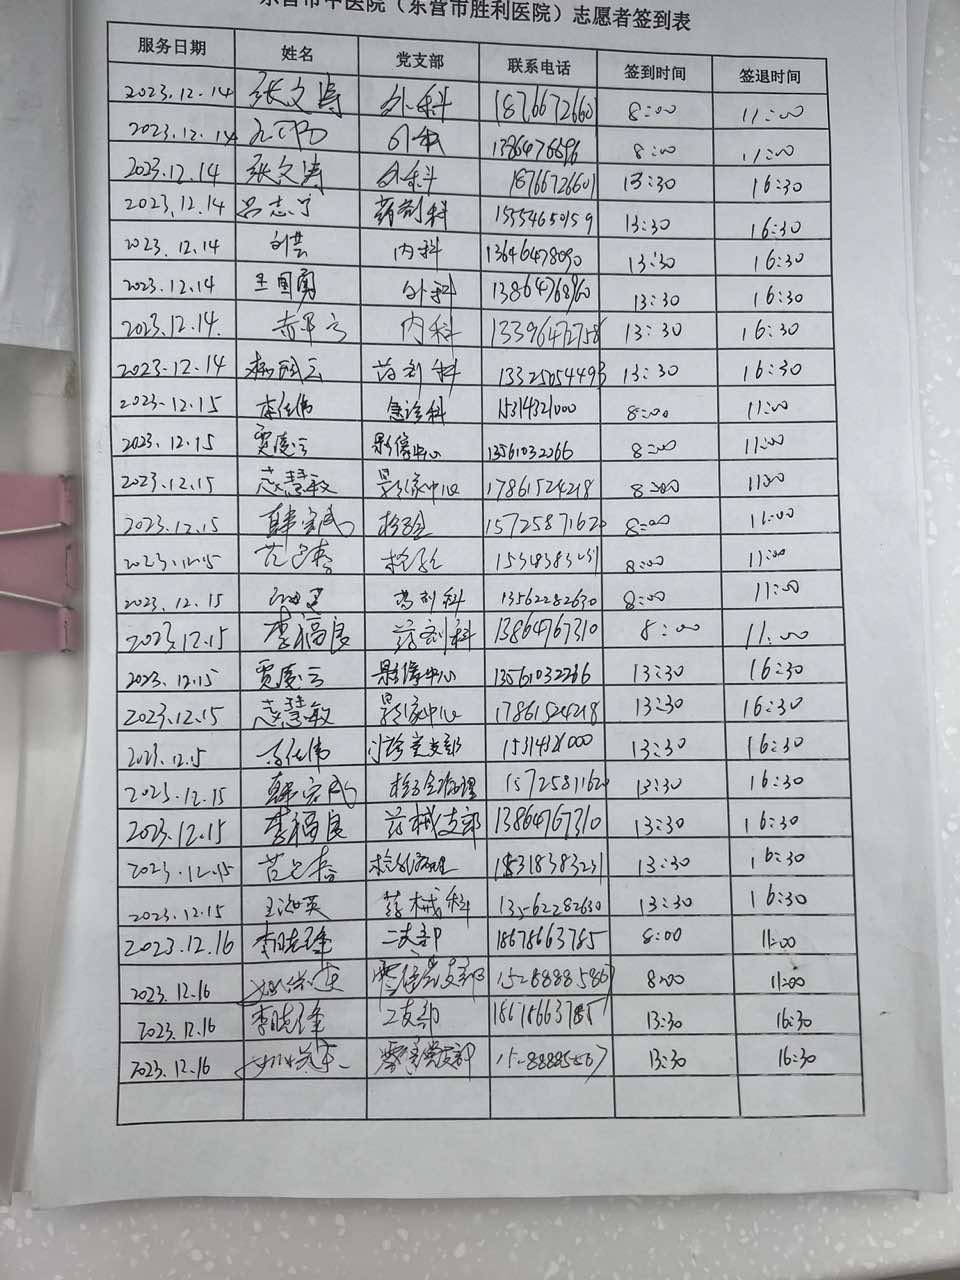 东营市中医院（东营市胜利医院）志愿者签到表
服务日期 姓名 党支部 联系电话 签到时间 签退时间
2023.12.14 张文涛 外科 18766726601 8:00 11:00
2023.12.14 外科 8:00 11:00
2023.12.14 张文涛 外科 18766726601 13:30 16:30
2023.12.14 吕志宁 药剂科 15554650159 13:30 16:30
2023.12.14 内科 13646478090 13:30 16:30
2023.12.14 王国勇 外科 13:30 16:30
2023.12.14. 内科 13396472758 13:30 16:30
2023.12.14 药剂科 13325054493 13:30 16:30
2023.12.15 李任伟 急诊科 15314321000 8:00 11:00
2023.12.15 贾凌云 影像中心 13561032266 8:00 11:00
2023.12.15 慧敏 影像中心 17861524218 8:00 11:00
2023.12.15 韩宗民 检验 15725871620 8:00 11:00
2023.12.15 检验 15318383231 8:00 11:00
2023.12.15 药剂科 13562282630 8:00 11:00
2023.12.15 李福良 药剂科 13864767310 8:00 11:00
2023.12.15 贾凌云 影像中心 13561032266 13:30 16:30
2023.12.15 慧敏 影像中心 17861524218 13:30 16:30
2023.12.15 李任伟 门诊党支部 15314321000 13:30 16:30
2023.12.15 韩宗民 检验病理 15725871620 13:30 16:30
2023.12.15 李福良 药械支部 13864767310 13:30 16:30
2023.12.15 检验病理 15318383231 13:30 16:30
2023.12.15 王淑英 药械科 13562282630 13:30 16:30
2023.12.16 李晓峰 二支部 18678663785 8:00 11:00
2023.12.16 支部 15288885867 8:00 11:00
2023.12.16 李晓峰 二支部 18678663785 13:30 16:30
2023.12.16 支部 13:30 16:30